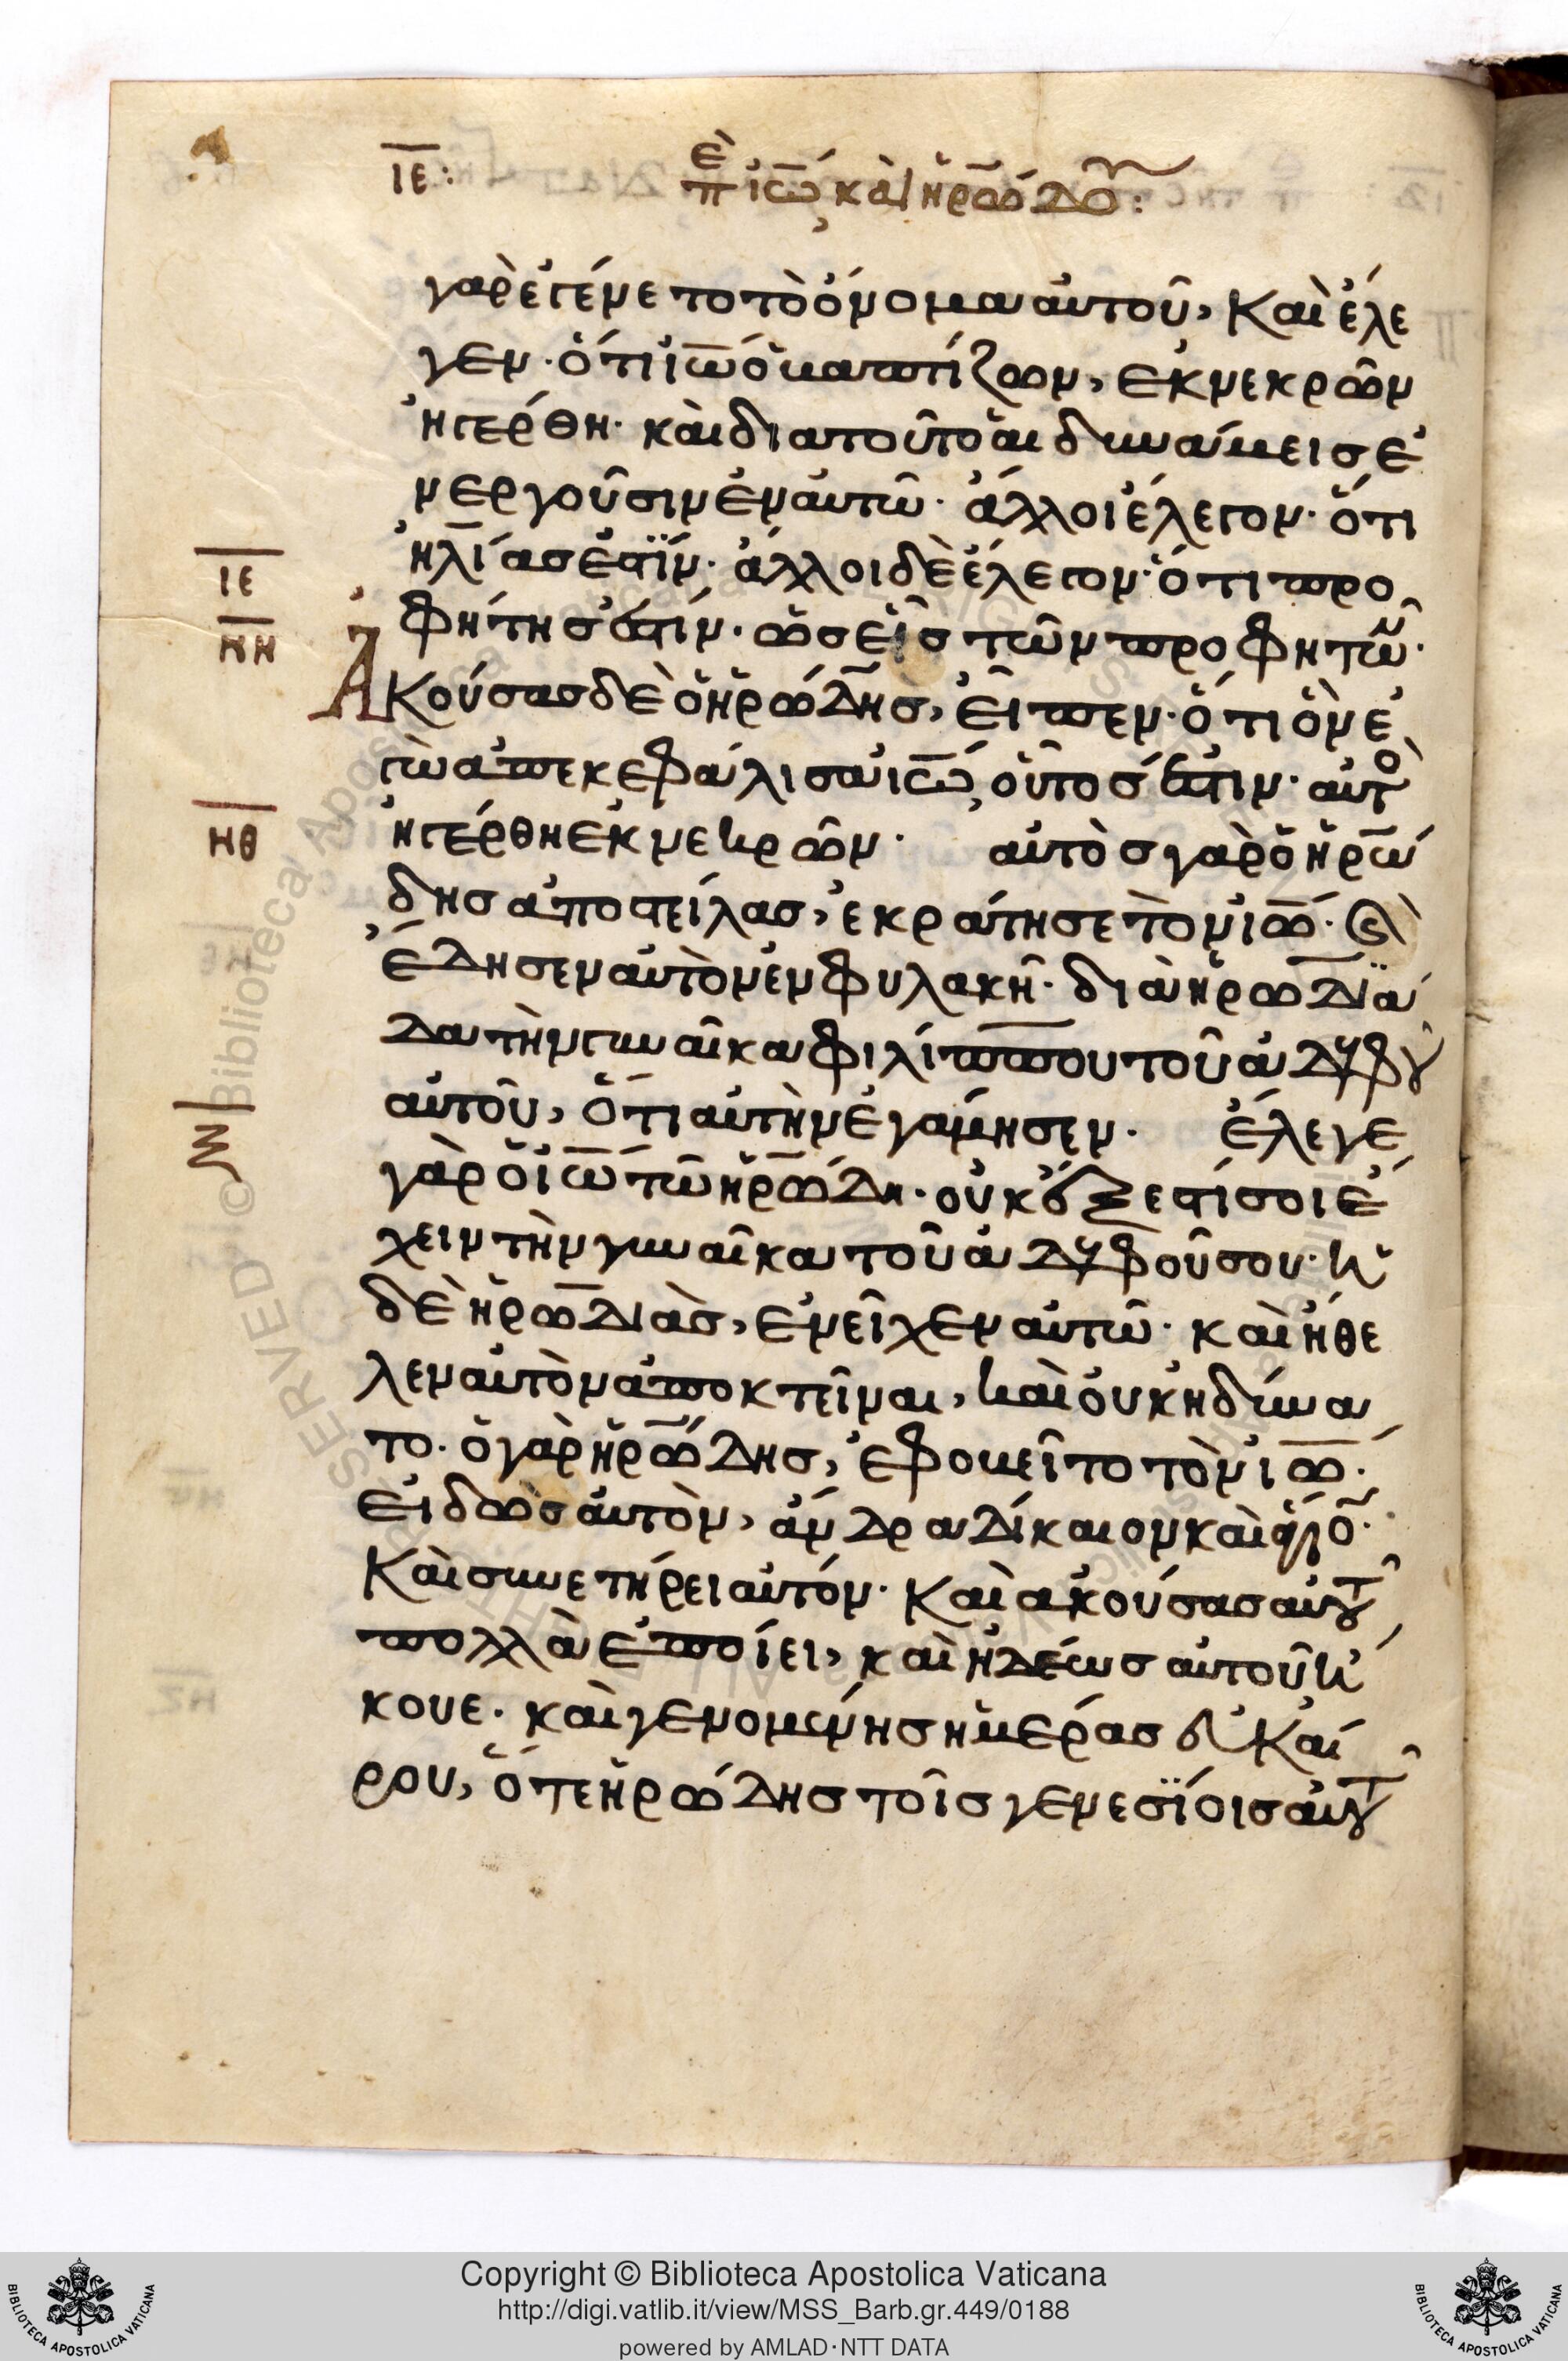 ΙΕ: ἐπ ἰω̅ καὶ ἡρώδου:
γὰρ ἐγένετο τὸ ὄνομα αὐτοῦ, Καὶ ἔλε
γεν· ὅτι ἰω̅ ὁ βαπτίζων, ἐκ νεκρῶν
ἠγέρθη· καὶ διατοῦτο αἱ δυνάμεισ ἐ
νεργοῦσιν ἐν αὐτῶ· ἄλλοι ἔλεγον· ὅτι
ἠλίασ ἐστϊν· ἄλλοι δὲ ἔλεγον· ὅτι προ
ΙΕ
φήτησ ἐστίν· ὡσ εἷσ τῶν προφητῶ̅·
ΜΗ
Ἀκούσασ δὲ ὁ ἡρώδησ, εἶπεν· ὅτι ὃν ἐ
γὼ ἀπεκεφάλισα ἰω̅, οὗτόσ ἐστιν· αὐτὸ
ἠγέρθη ἐκ νεκρῶν· αὐτὸσ γὰρ ὁ ἡρώ
ΜΘ
δησ ἀποστείλασ, ἐκράτησε τὸν ἰω̅· (καὶ)
ἔδησεν αὐτὸν ἐν φυλακῆ· διὰ ἡρωδϊά
δα τὴν γυναῖκα φιλίππου τοῦ ἀδελφοῦ
αὐτοῦ, ὅτι αὐτὴν ἐγάμησεν· ἔλεγε
Ν
γὰρ ὁ ἰω̅ τῶ ἡρώδη· οὐκ ἔξεστί σοι ἔ
χειν τὴν γυναῖκα τοῦ ἀδελφοῦ σου· ἡ
δὲ ἡρωδιὰσ, ἐνεῖχεν αὐτῶ· καὶ ἤθε
λεν αὐτὸν ἀποκτεῖναι, καὶ οὐκ ἠδύνα
το· ὁ γὰρ ἡρώδησ, ἐφοβεῖτο τὸν ἰω̅·
εἰδὼσ αὐτὸν, ἄνδρα δίκαιον καὶ ἅγιο̅·
Καὶ συνετήρει αὐτόν· Καὶ ἀκούσασ αὐτοῦ
πολλὰ ἐποίει, καὶ ἡδέωσ αὐτοῦ ἤ
κουε· καὶ γενομένησ ἡμέρασ εὐκαί
ρου, ὅτε ἡρώδησ τοῖσ γενεσϊοισ αὐτοῦ
Copyright © Biblioteca Apostolica Vaticana
http://digi.vatlib.it/view/MSS_Barb.gr.449/0188
powered by AMLAD·NTT DATA
BIBLIOTECA APOSTOLICA VATICANA
BIBLIOTECA APOSTOLICA VATICANA